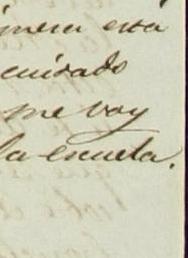 imera esta
cuidado
me voy
la escuela.